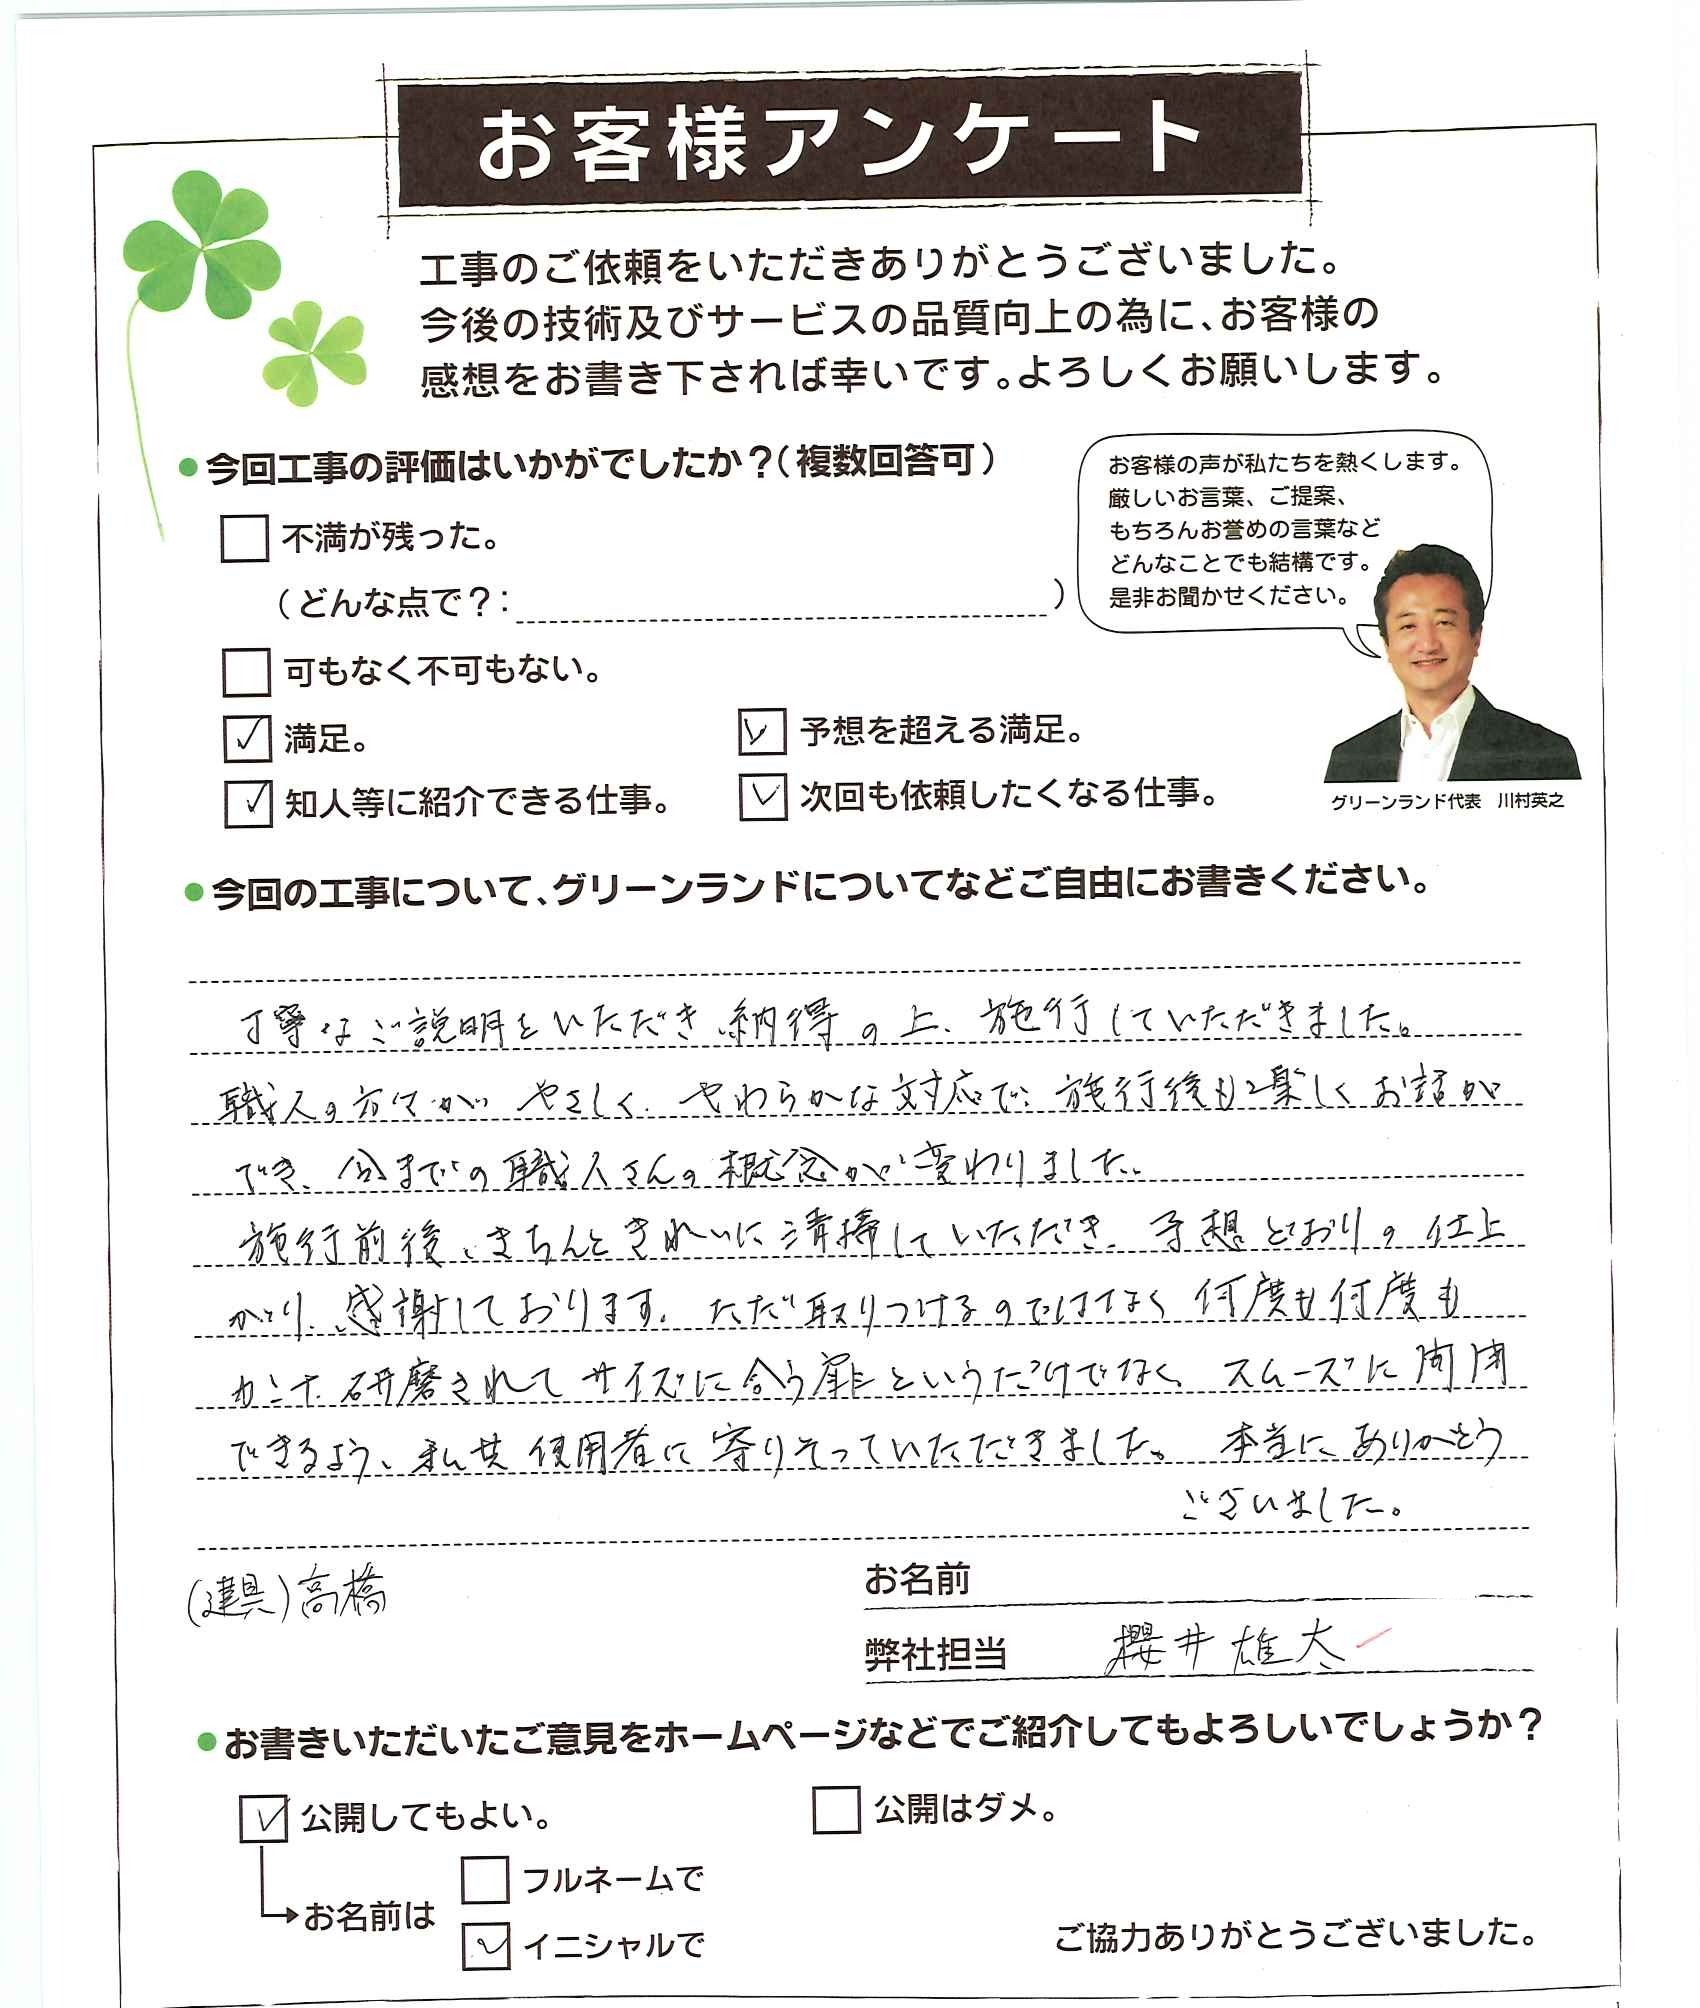 お客様アンケート
工事のご依頼をいただきありがとうございました。
今後の技術及びサービスの品質向上の為に、お客様の
感想をお書き下されば幸いです。よろしくお願いします。
●今回工事の評価はいかがでしたか？（複数回答可）
不満が残った。
（どんな点で？：　）
可もなく不可もない。
満足。
予想を超える満足。
知人等に紹介できる仕事。
次回も依頼したくなる仕事。
お客様の声が私たちを熱くします。
厳しいお言葉、ご提案、
もちろんお誉めの言葉など
どんなことでも結構です。
是非お聞かせください。
グリーンランド代表　川村英之
●今回の工事について、グリーンランドについてなどご自由にお書きください。
丁寧なご説明をいただき納得の上、施行していただきました。
職人の方々が やさしく、やわらかな対応で、施行後も楽しくお話が
でき、今までの職人さんの概念が変わりました。
施行前後、きちんときれいに清掃していただき、予想どおりの仕上
がり、感謝しております。ただ取りつけるのではなく何度も何度も
カンナ、研磨されてサイズに合う扉というだけでなく、スムーズに開閉
できるよう、私共使用者に寄りそっていただきました。本当にありがとう
ございました。
（建具）高橋
お名前
弊社担当　櫻井雄太
●お書きいただいたご意見をホームページなどでご紹介してもよろしいでしょうか？
公開してもよい。
公開はダメ。
お名前は
フルネームで
イニシャルで
ご協力ありがとうございました。